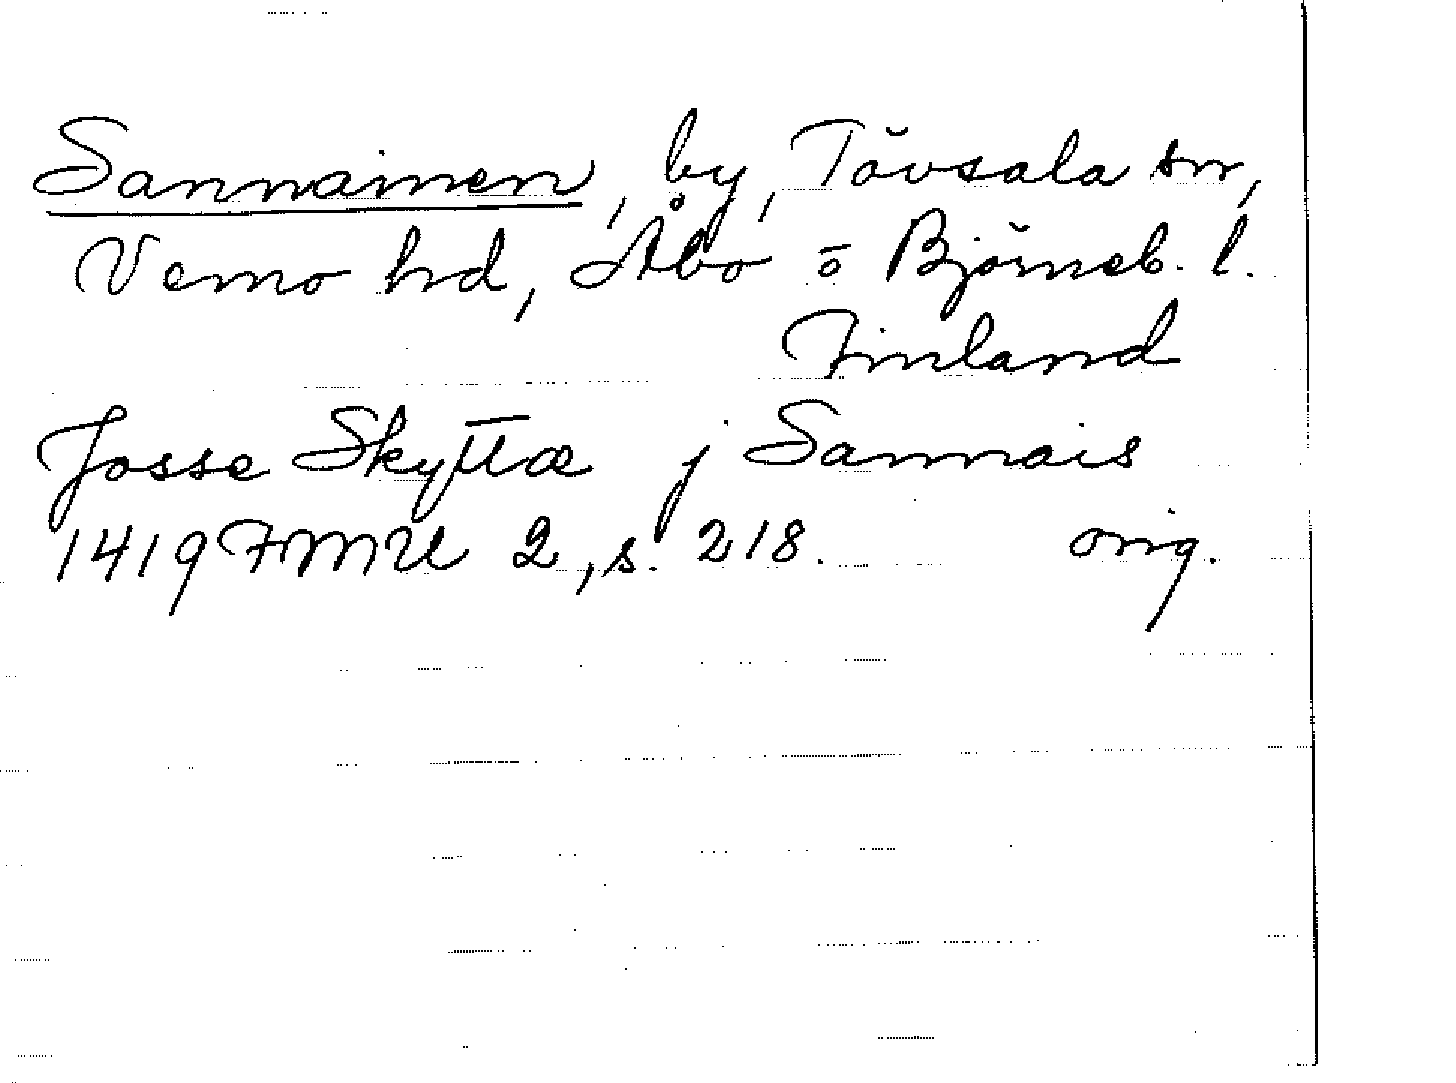 Sannainen, by, Tövsala sn,
Vemo hd, Åbo o Björneb. l.
Finland
Josse Skyttæ j Sannais
1419 FMU 2, s. 218. orig.